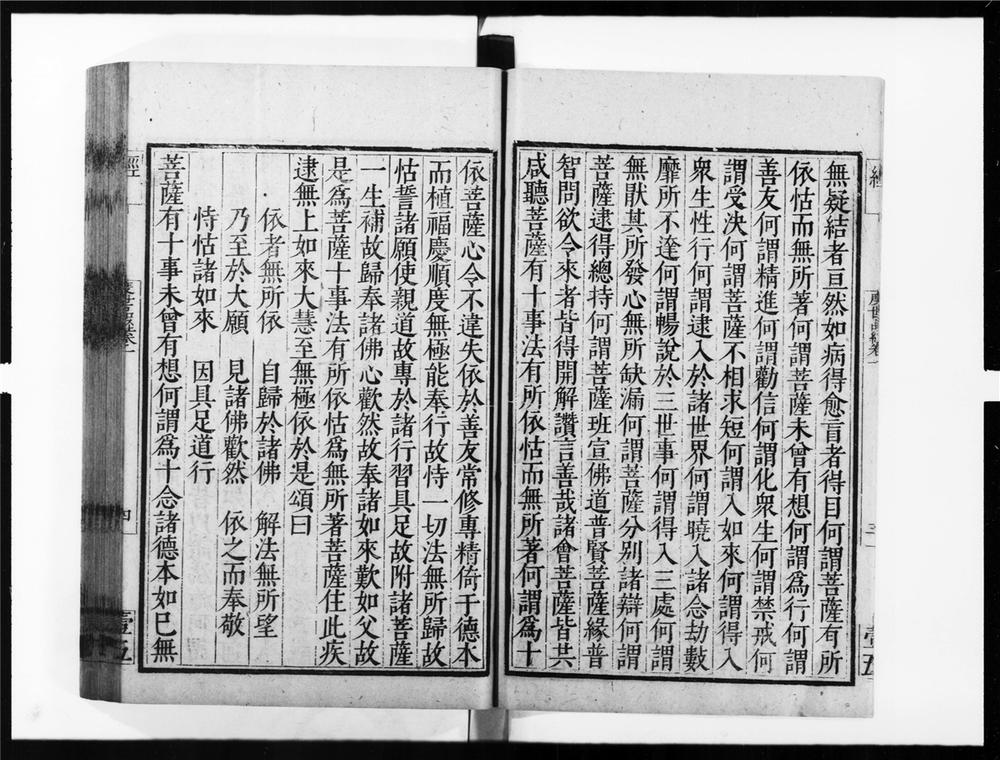 無疑結者亘然如病得愈盲者得目何謂菩薩有所
依怙而無所著何謂菩薩未曾有想何謂為行何謂
善友何謂精進何謂勸信何謂化眾生何謂禁戒何
謂受決何謂菩薩不相求短何謂入如來何謂得入
眾生性行何謂逮入於諸世界何謂曉入諸念劫數
靡所不達何謂暢說於三世事何謂得入三處何謂
無猒其所發心無所缺漏何謂菩薩分別諸辯何謂
菩薩逮得總持何謂菩薩班宣佛道普賢菩薩緣普
智問欲令來者皆得開解讚言善哉諸會菩薩皆共
咸聽菩薩有十事法有所依怙而無所著何謂為十
依菩薩心令不違失依於善友常修專精倚千德本
而植福慶順度無極能奉行故恃一切法無所歸故
怙誓諸願使親道故專於諸行習具足故附諸菩薩
一生補故歸奉諸佛心歡然故奉諸如來歎如父故
是為菩薩十事法有所依怙為無所著菩薩住此疾
逮無上如來大慧至無極依於是頌曰
依者無所依　自歸於諸佛　解法無所望
乃至於大願　見諸佛歡然　依之而奉敬
恃怙諸如來　因具足道行
菩薩有十事未曾有想何謂為十念諸德本如巳無
經
四
壹五